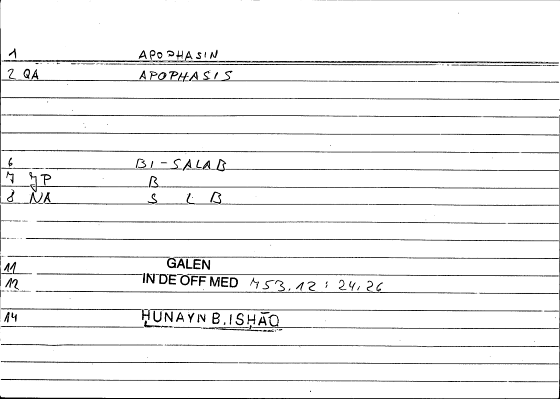 1 APOPHASIN
2 QA APOPHASIS
6 BI-SALAB
7 JP B
8 NA S L B
11 GALEN
12 IN DE OFF MED 753.12 : 24,26
14 HUNAYN B. ISHĀQ